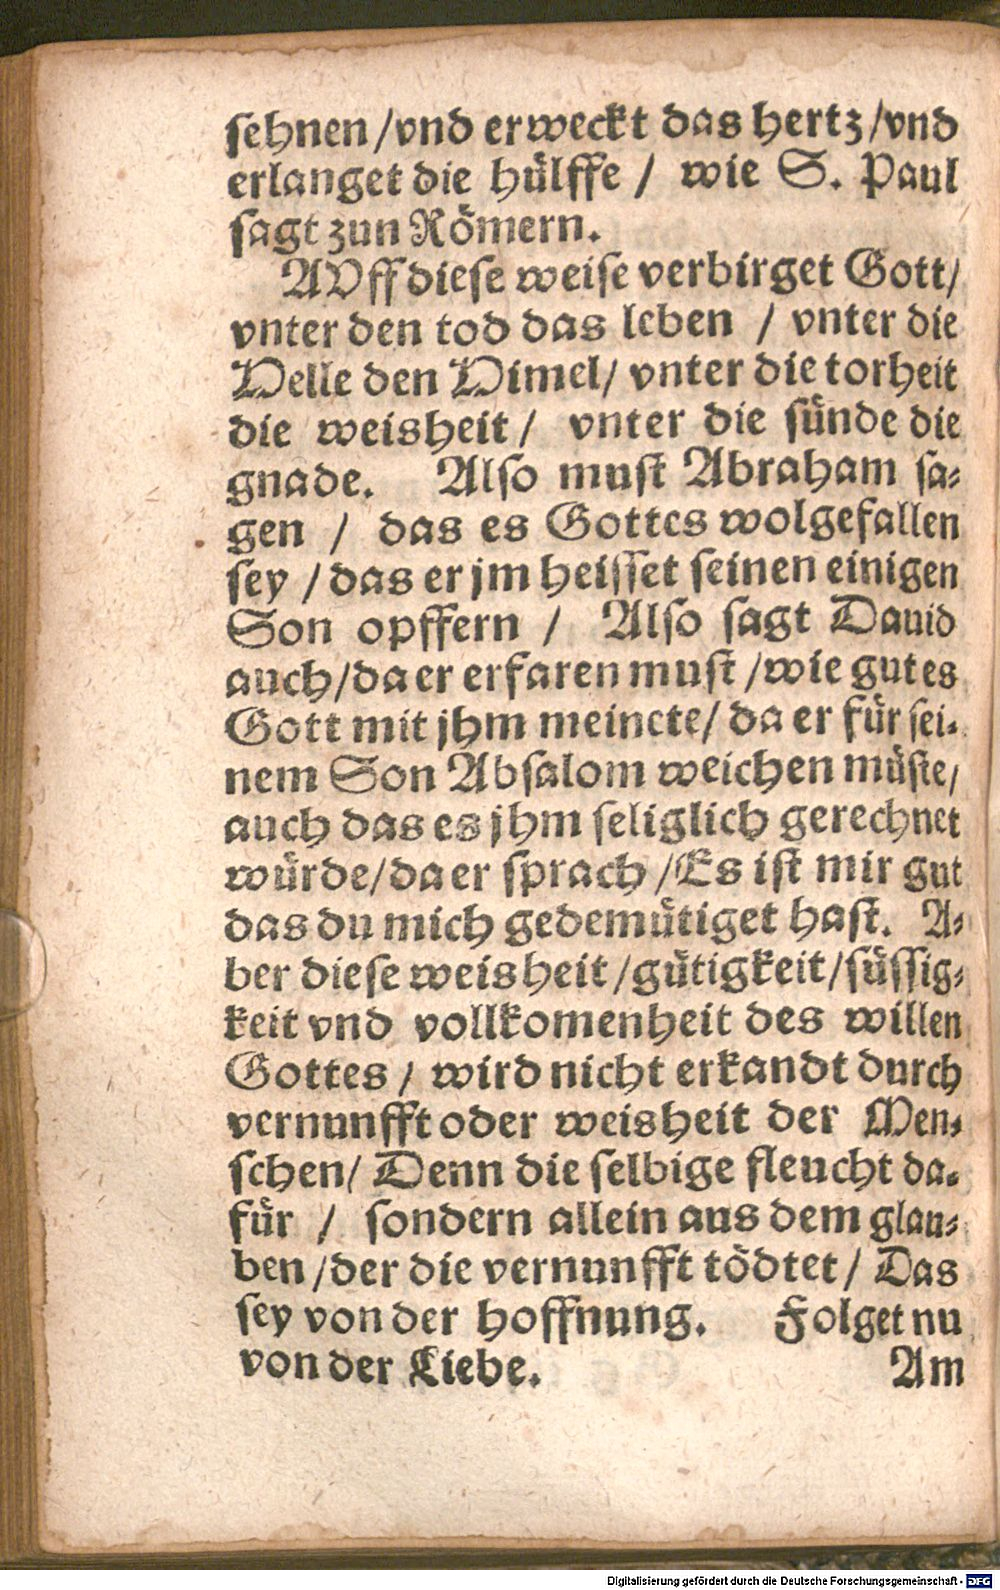 sehnen /vnd erweckt das hertz /vnd
erlanget die hülffe / wie S. Paul
sagt zun Römern.
AVff diese weise verbirget Gott /
vnter den tod das leben / vnter die
Helle den Himel / vnter die torheit
die weisheit / vnter die sünde die
gnade. Also must Abraham sa-
gen / das es Gottes wolgefallen
sey / das er jm heisset seinen einigen
Son opffern / Also sagt Dauid
auch / da er erfaren must / wie gut es
Gott mit jhm meinete / da er für sei-
nem Son Absalom weichen müste /
auch das es jhm seliglich gerechnet
würde / da er sprach / Es ist mir gut
das du mich gedemütiget hast. A-
ber diese weisheit / gütigkeit / süssig-
keit vnd vollkomenheit des willen
Gottes / wird nicht erkandt durch
vernunfft oder weisheit der Men-
schen / Denn die selbige fleucht da-
für / sondern allein aus dem glau-
ben / der die vernunfft tödtet / Das
sey von der hoffnung. Folget nu
von der Liebe. Am
Digitalisierung gefördert durch die Deutsche Forschungsgemeinschaft - DFG